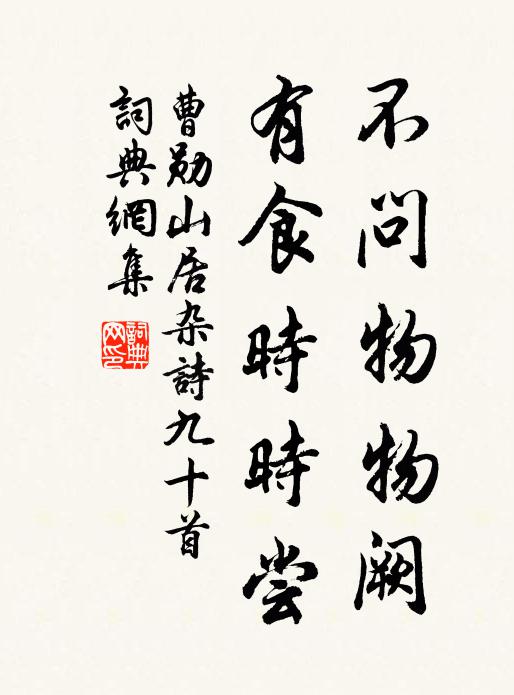 不问物物阙
有食時時尝
曹勋山居杂詩九十首
詞典網集
詞典网印